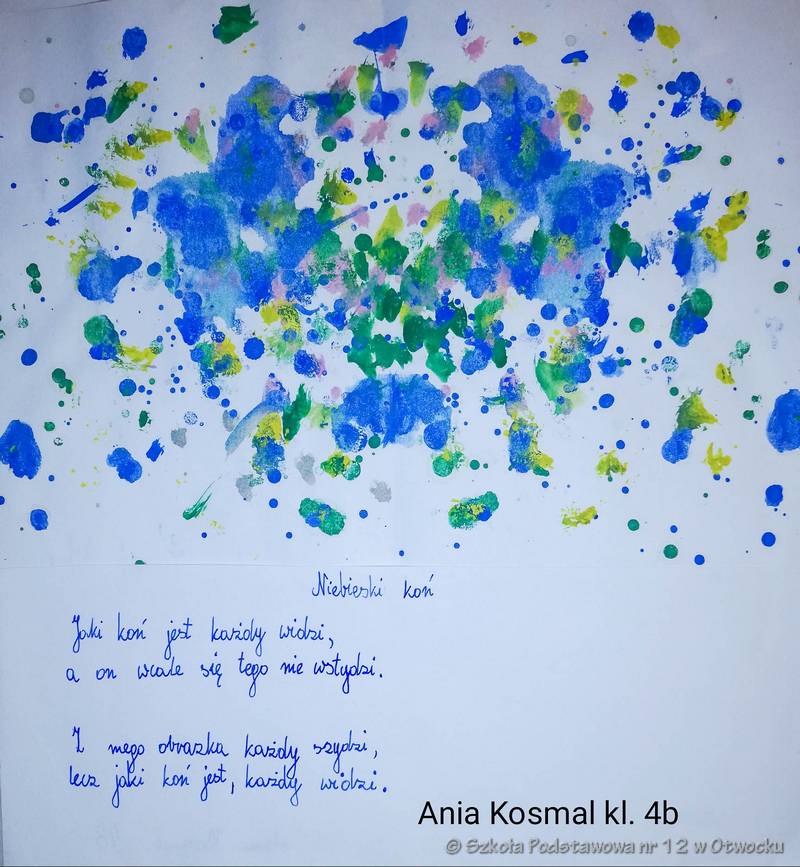 Niebieski koń
Jaki koń jest każdy widzi,
a on wcale się tego nie wstydzi.
Z mego obrazka każdy szydzi,
lecz jaki koń jest, każdy widzi.
Ania Kosmal kl. 4b
© Szkoła Podstawowa nr 12 w Otwocku